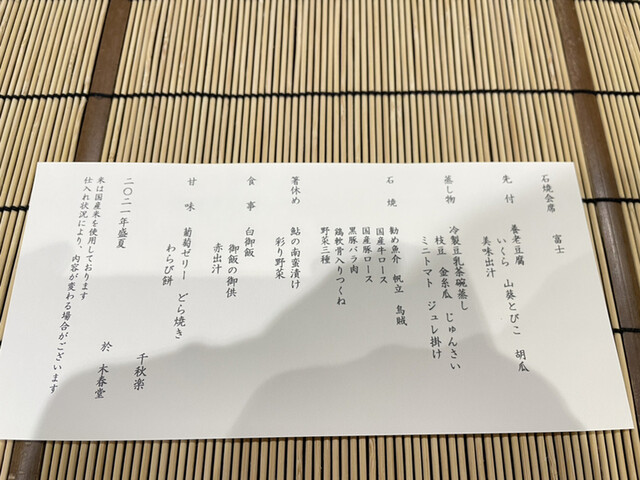 石焼会席　富士
先付　養老豆腐
いくら　山葵とびこ　胡瓜
美味出汁
蒸し物　冷製豆乳茶碗蒸し
枝豆　金糸瓜　じゅんさい
ミニトマト　ジュレ掛け
石焼　勧め魚介　帆立　烏賊
国産牛ロース
国産豚ロース
黒豚バラ肉
鶏軟骨入りつくね
野菜三種
箸休め　鮎の南蛮漬け
彩り野菜
食事　白御飯
御飯の御供
赤出汁
甘味　葡萄ゼリー　どら焼き
わらび餅
千秋楽
二〇二一年盛夏
於　木春堂
米は国産米を使用しております
仕入れ状況により、内容が変わる場合がございます